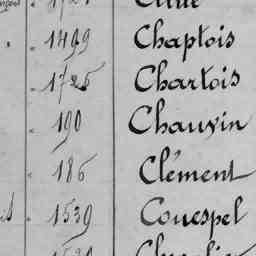 1499 Chaptois
1725 Chartois
190 Chauvin
186 Clément
1539 Couespel